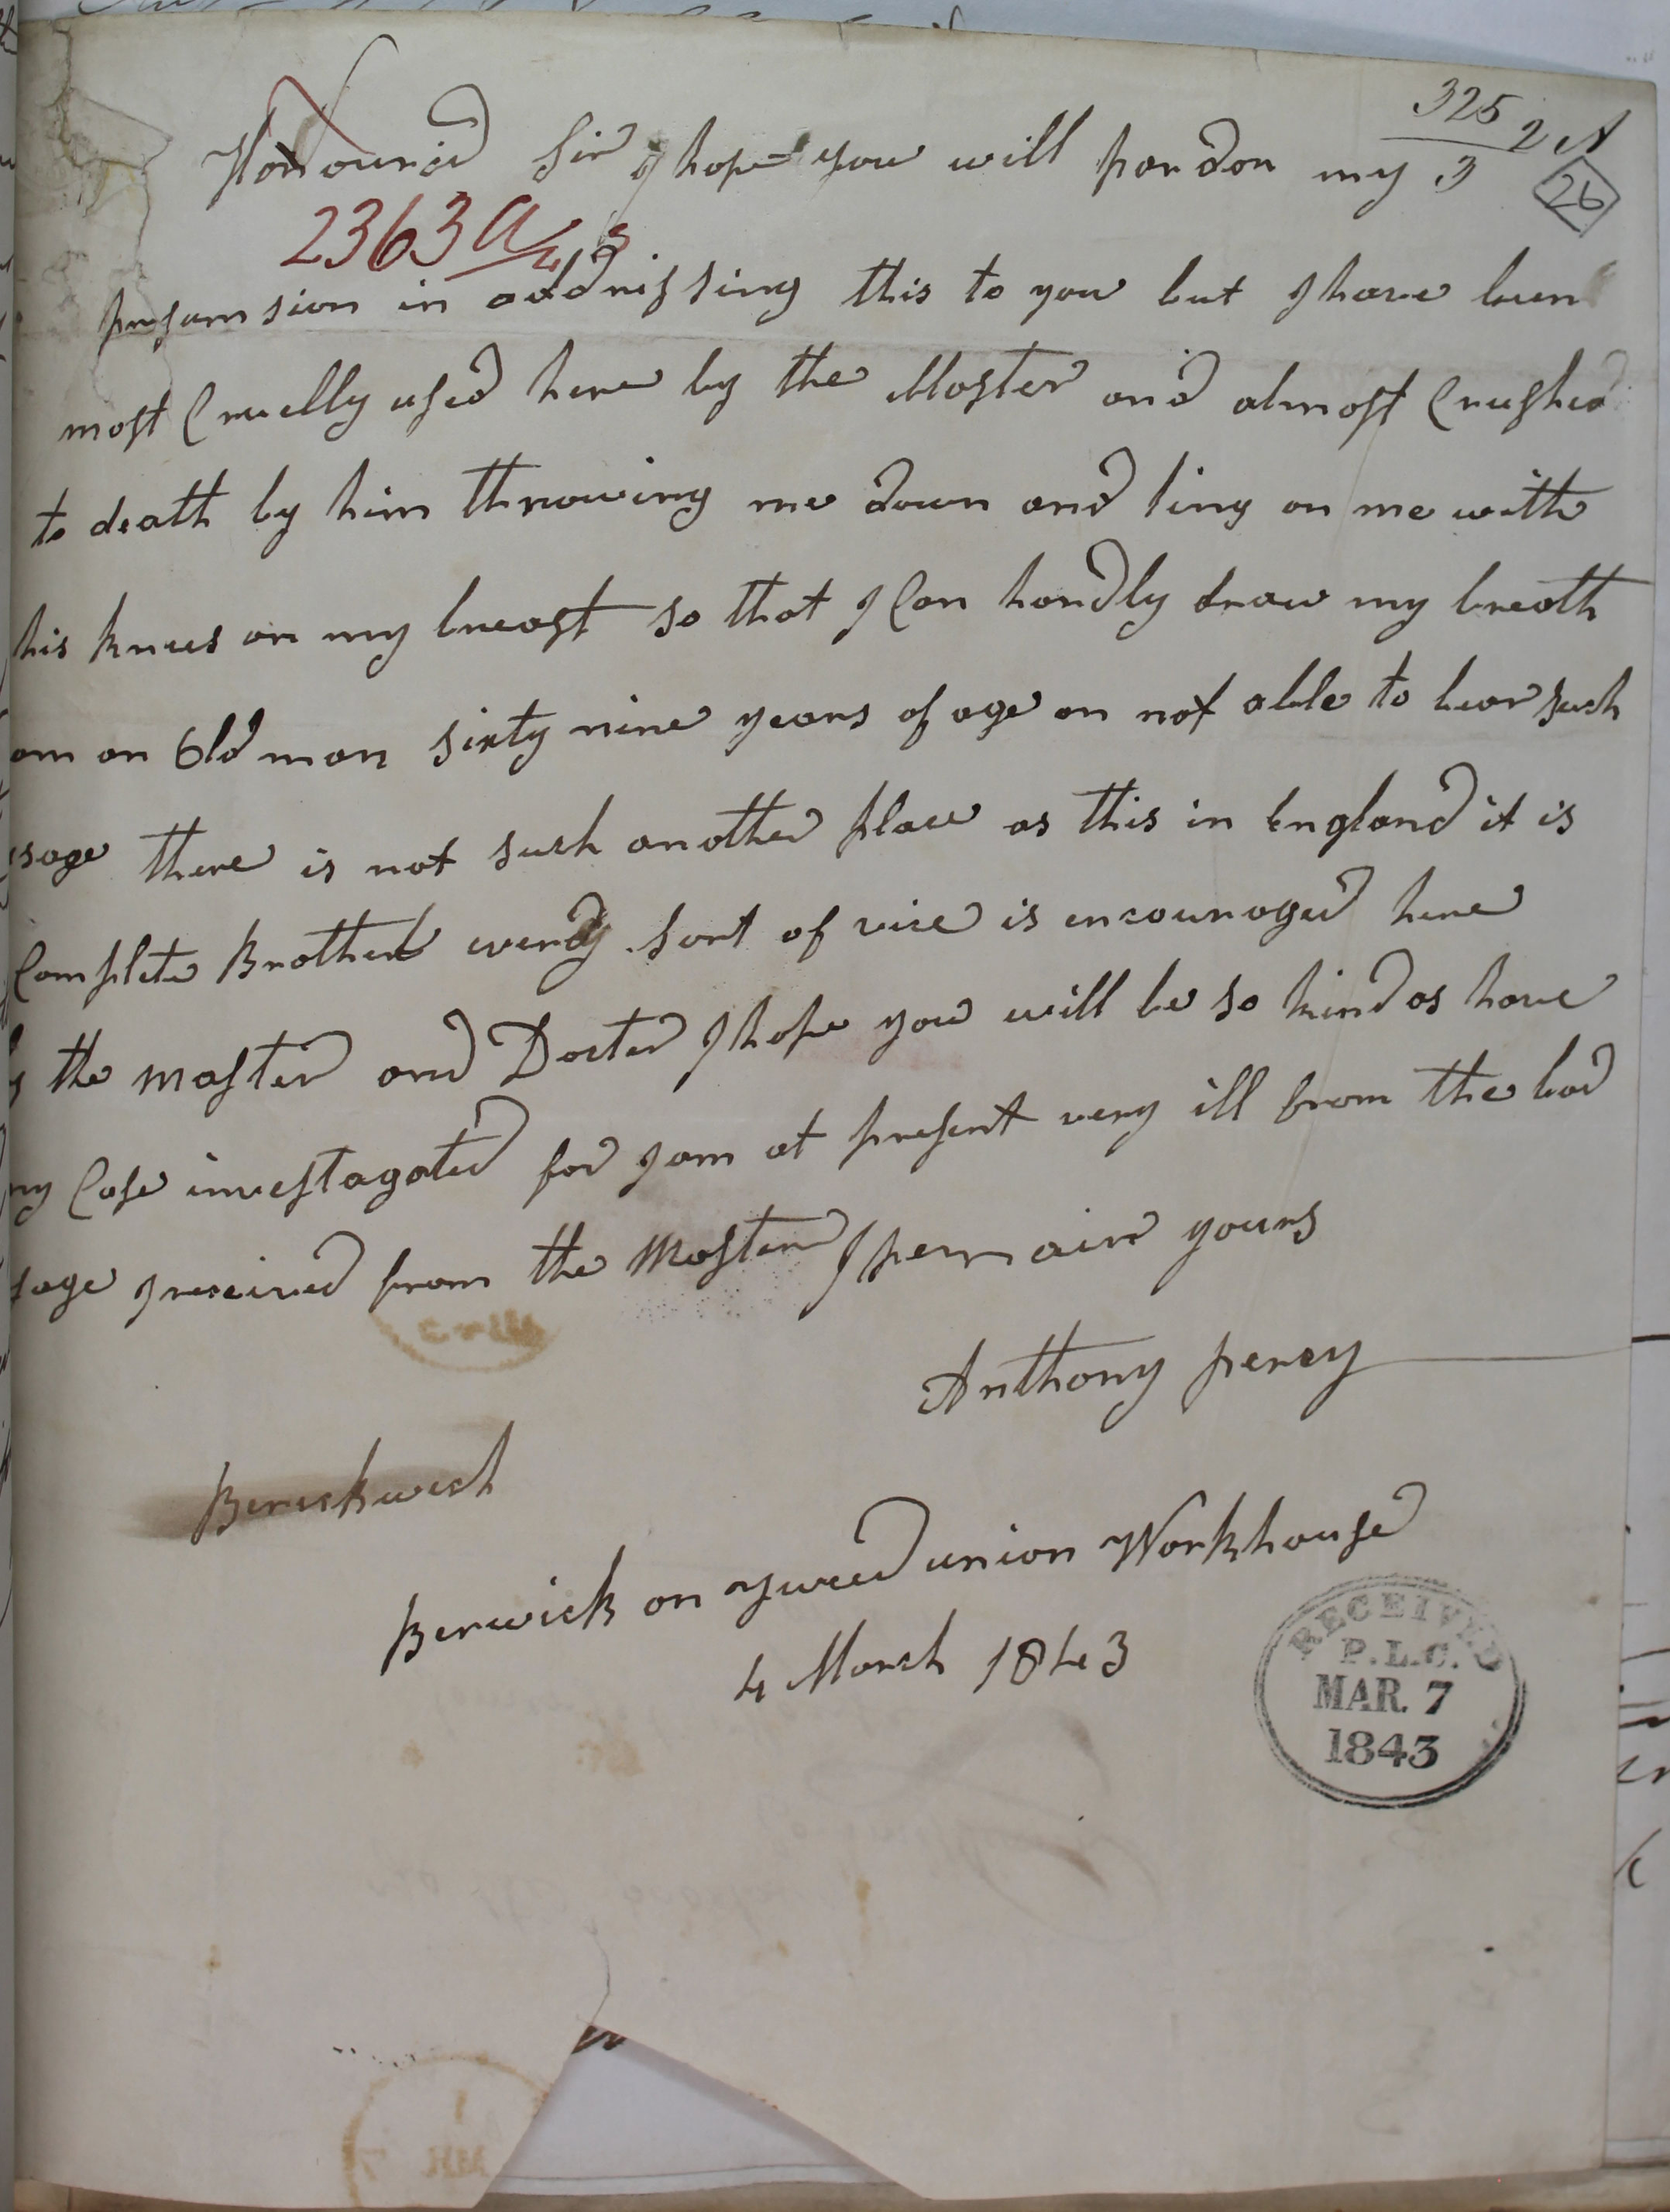 325 2 A
3
26
Honoured Sir I hope you will pardon my
2363 a/43
presumsion in addressing this to you but I have been
most Cruelly used here by the Master and almost Crushed
to death by him throwing me down and ling on me with
his knees on my breast so that I Can hardly draw my breath
am an Old man sixty nine years of age an not able to bear such
sage there is not such another place as this in England it is
Complete Brothel every sort of vice is encouraged here
the master and Docter I hope you will be so kind as have
my Case investagated for I am at present very ill from the bad
sage I received from the Master I remain yours
Anthony percy
Berwick on Tweed union Workhouse
4 March 1843
RECEIVED
P.L.C.
MAR. 7
1843